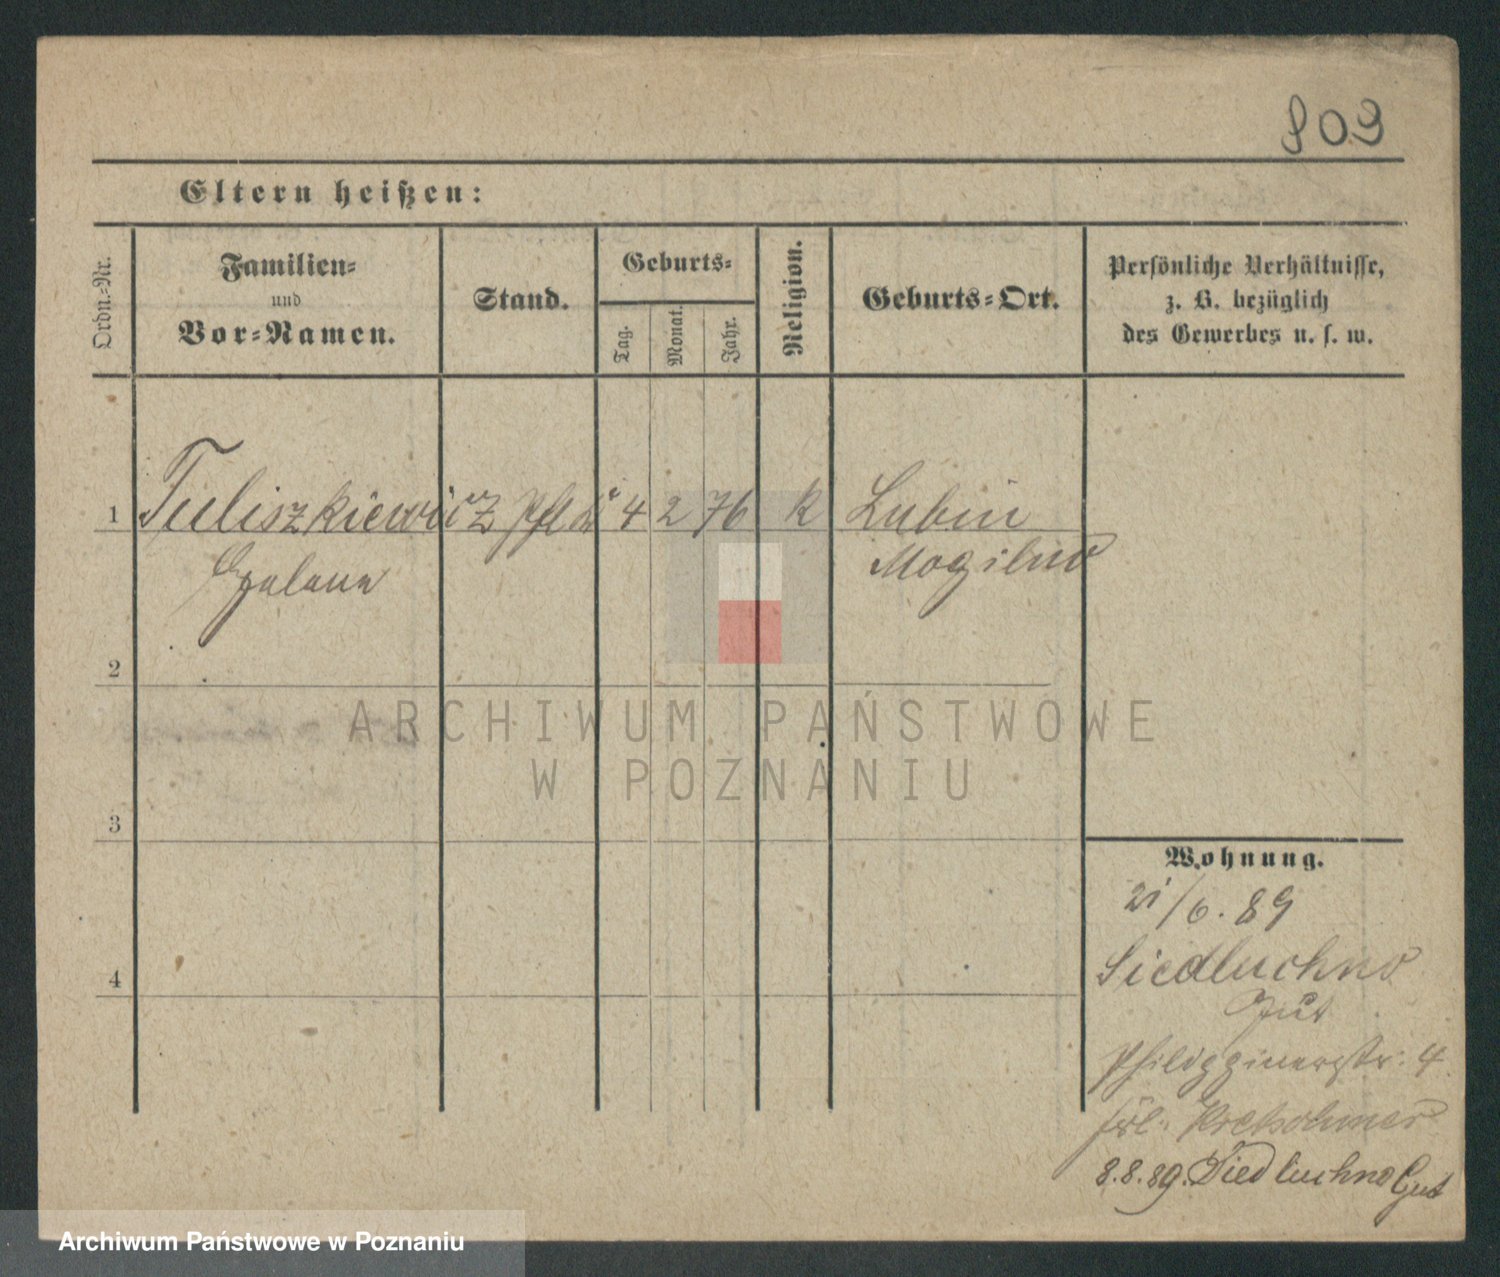 809
Eltern heißen:
Ordn.-Nr.
Familien-
und
Vor-Namen.
Stand.
Geburts-
Tag.
Monat.
Jahr.
Religion.
Geburts-Ort.
Persönliche Verhältnisse,
z. B. bezüglich
des Gewerbes u. s. w.
1 Tuliszkiewicz 4 2 76 k Lubin
Mogilno
2
ARCHIWUM PAŃSTWOWE
W POZNANIU
3
Wohnung.
21/6. 89
Siedluchno
Gut
4
Philippinerstr. 4
frl. Kretschmer
8.8.89. Siedluchno Gut
Archiwum Państwowe w Poznaniu